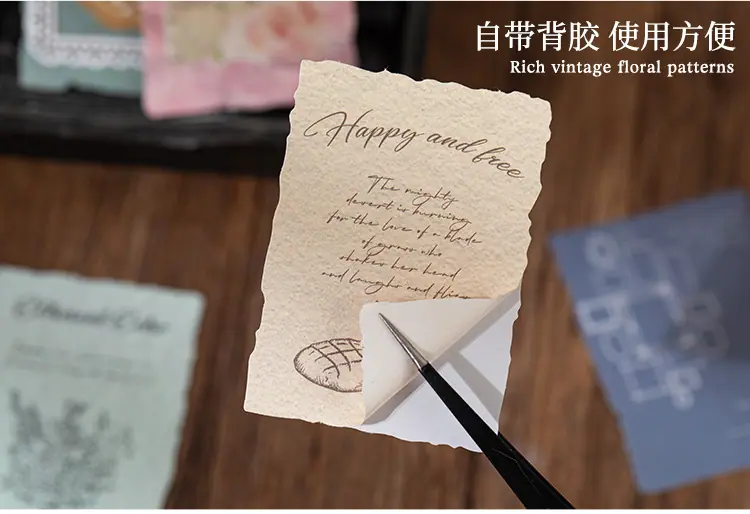 自带背胶 使用方便
Rich vintage floral patterns
Happy and free
The mighty
desert is burning
for the love of a blade
of grass who
shakes her head
and laughs and flies